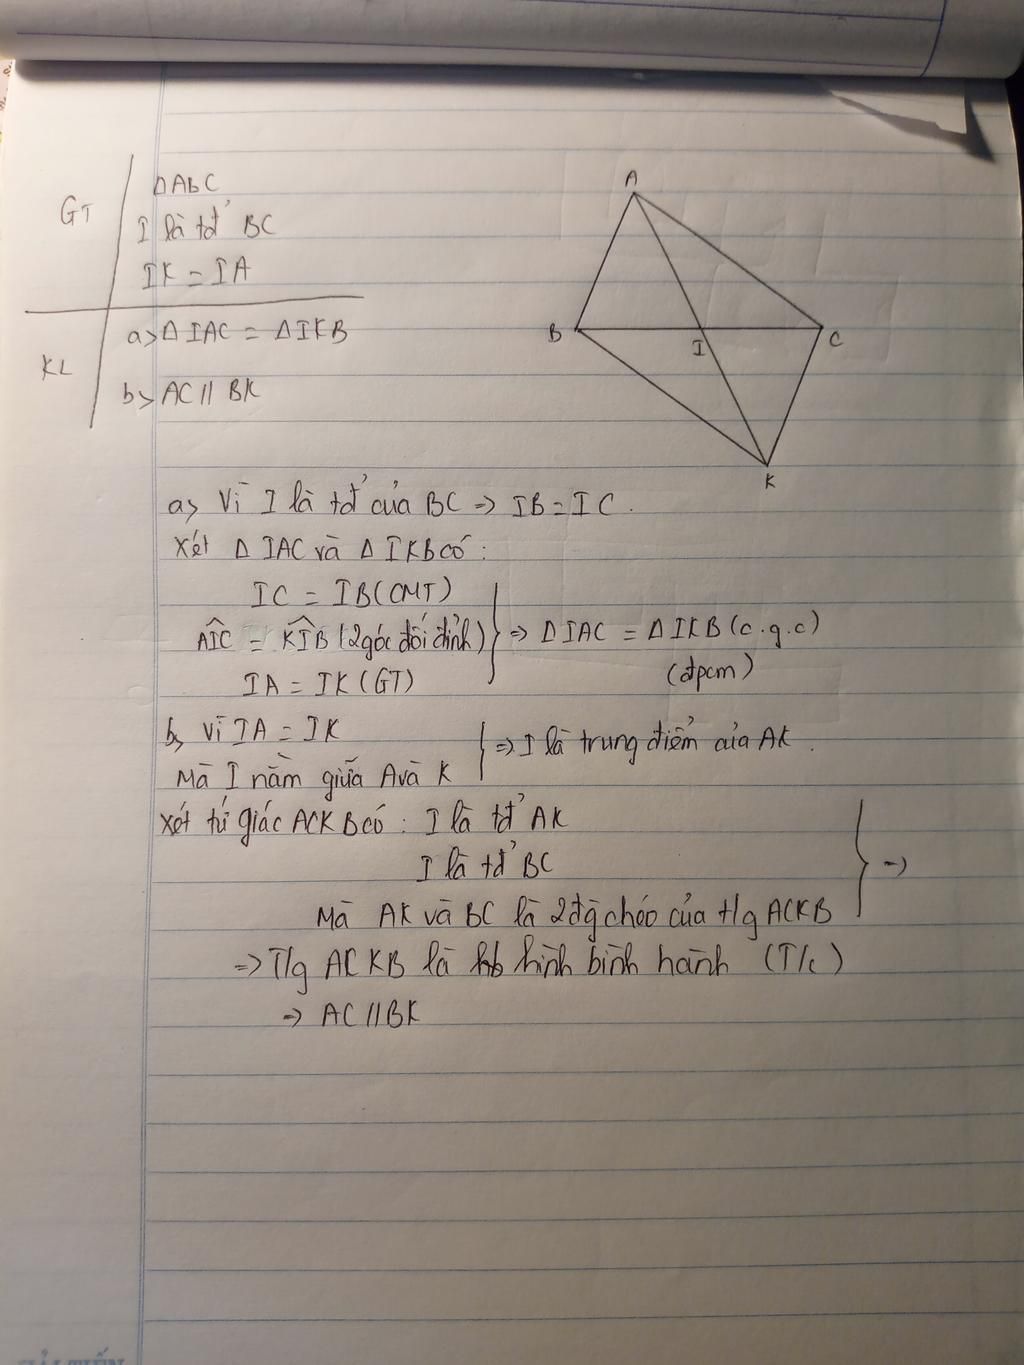 GT
ΔABC
I là tđ' BC
IK = IA
KL
a> ΔIAC = ΔIKB
b> AC // BK
A
B
I
C
K
a> Vì I là tđ' của BC => IB = IC.
Xét Δ IAC và Δ IKB có:
IC = IB (CMT)
AIC = KIB (2 góc đối đỉnh) => ΔIAC = ΔIKB (c.g.c)
IA = IK (GT) (đpcm)
b, Vì IA = IK
Mà I nằm giữa A và K => I là trung điểm của AK.
Xét tứ giác ACKB có: I là tđ' AK
I là tđ' BC =>
Mà AK và BC là 2 đg chéo của t/g ACKB
=> T/g ACKB là hình bình hành (T/c)
=> AC // BK